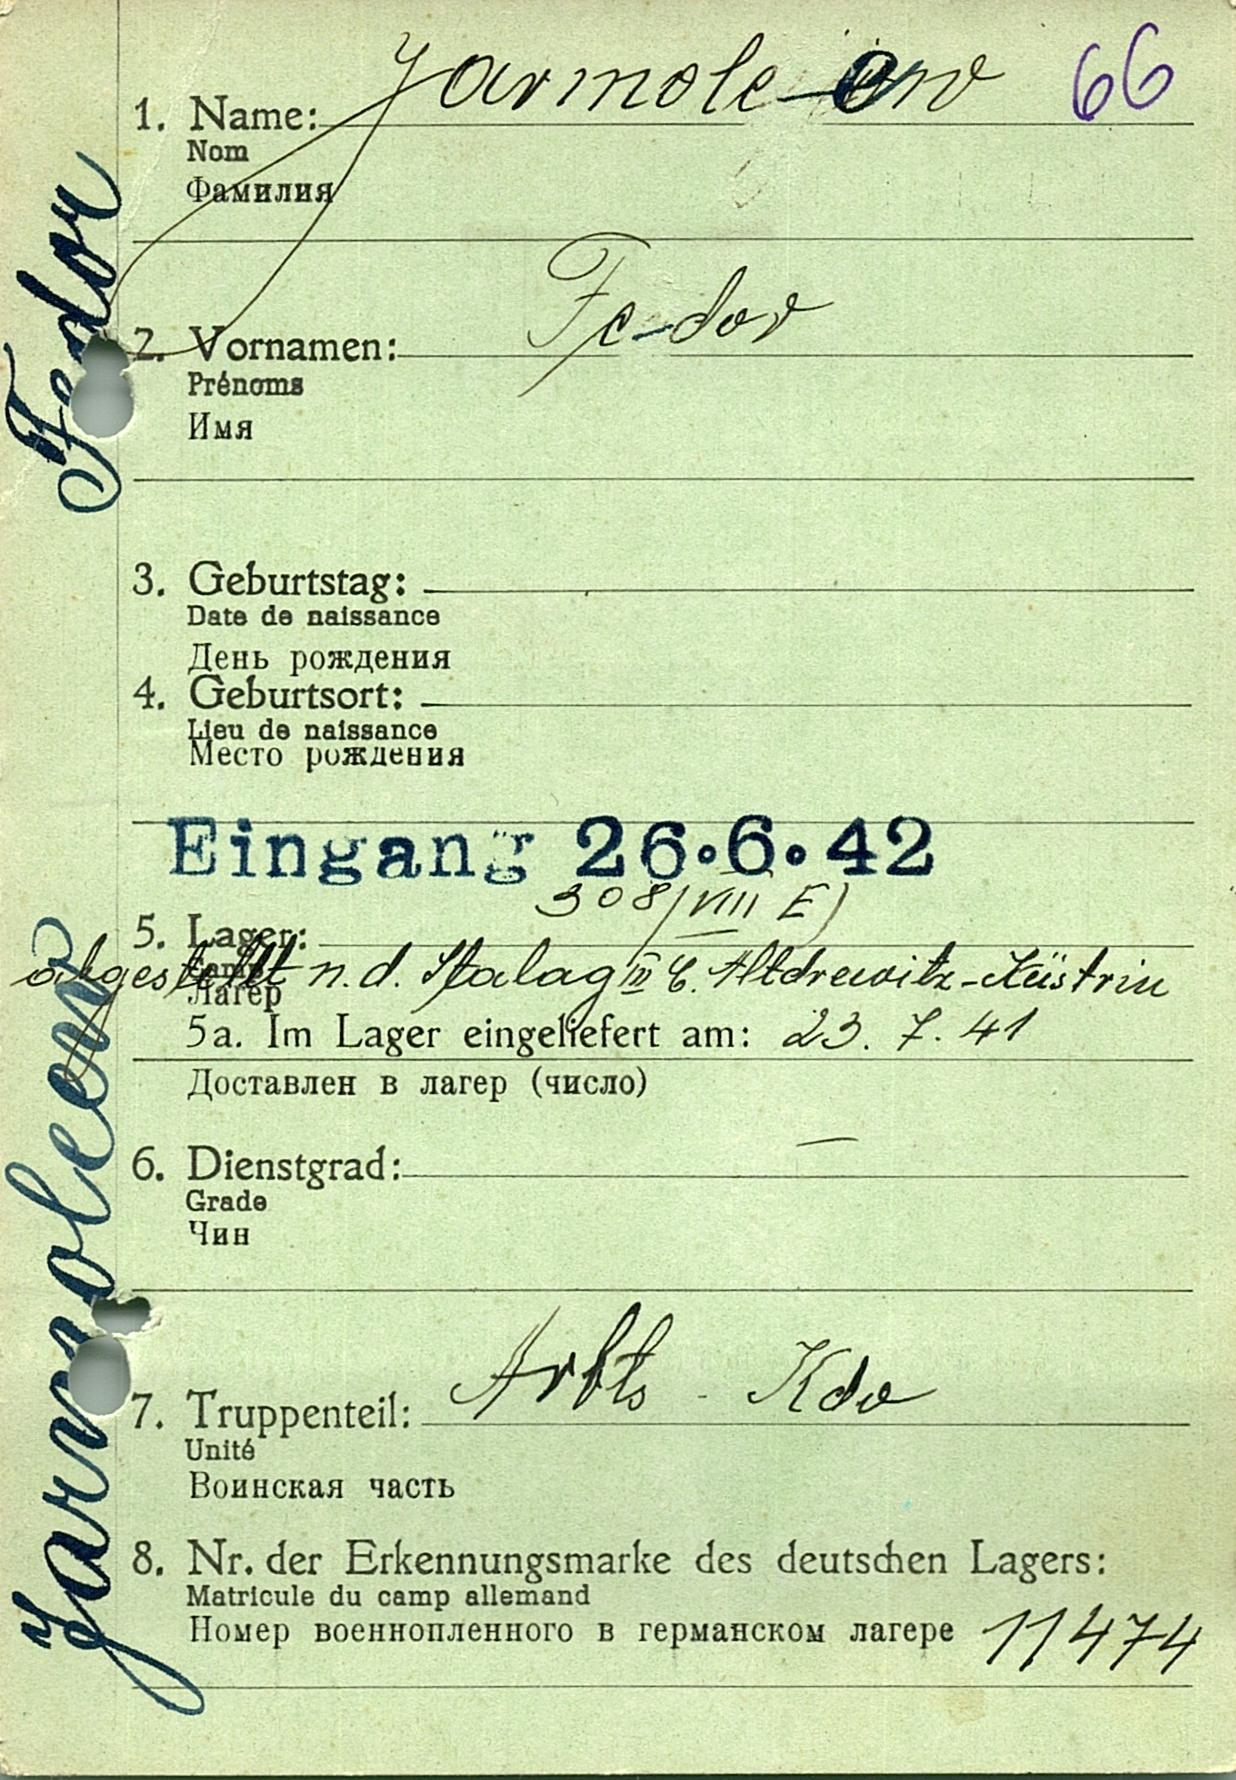 66
1. Name: Jarmoleenw
Nom
Фамилия
2. Vornamen: Fedor
Prénoms
Имя
3. Geburtstag:
Date de naissance
День рождения
4. Geburtsort:
Lieu de naissance
Место рождения
Eingang 26.6.42
308/VIII E)
5. Lager:
Camp
abgestellt n.d. Stalag III C. Altdrewitz-Küstrin
Лагерь
5a. Im Lager eingeliefert am: 23. 7. 41
Доставлен в лагер (число)
6. Dienstgrad: —
Grade
Чин
7. Truppenteil: Arbts - Kdo
Unité
Воинская часть
8. Nr. der Erkennungsmarke des deutschen Lagers:
Matricule du camp allemand
Номер военнопленного в германском лагере 11474
Jarmoleenw Fedor